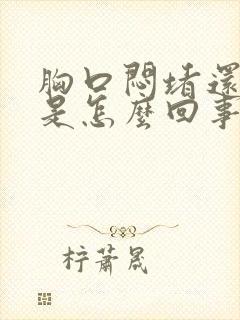 胸口悶堵還
是怎麼回事
柠蕭晟